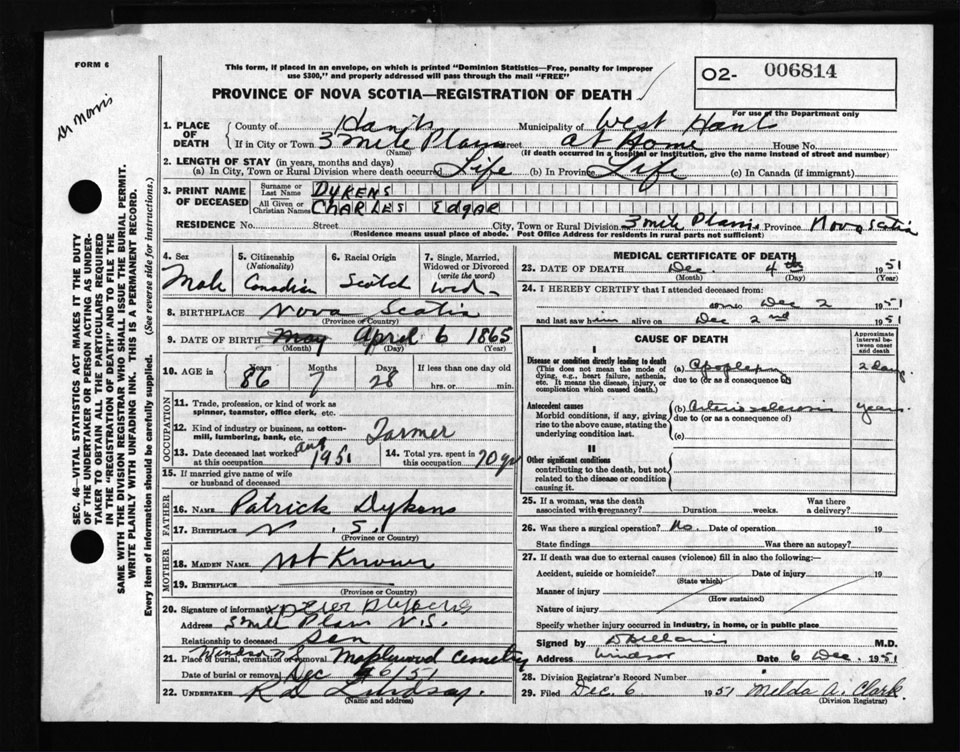 FORM 6
This form, if placed in an envelope, on which is printed "Dominion Statistics—Free, penalty for improper
use $300," and properly addressed will pass through the mail "FREE"
02- 006814
PROVINCE OF NOVA SCOTIA—REGISTRATION OF DEATH
For use of the Department only
Dr Morris
SEC. 46—VITAL STATISTICS ACT MAKES IT THE DUTY
OF THE UNDERTAKER OR PERSON ACTING AS UNDER-
TAKER TO OBTAIN ALL THE PARTICULARS REQUIRED
IN THE "REGISTRATION OF DEATH" AND TO FILE THE
SAME WITH THE DIVISION REGISTRAR WHO SHALL ISSUE THE BURIAL PERMIT.
WRITE PLAINLY WITH UNFADING INK. THIS IS A PERMANENT RECORD.
Every item of information should be carefully supplied. (See reverse side for instructions.)
1. PLACE OF DEATH County of Hants Municipality of West Hants
If in City or Town 3 Mile Plains Street at Home House No.
(Name) (If death occurred in a hospital or institution, give the name instead of street and number)
2. LENGTH OF STAY (in years, months and days)
(a) In City, Town or Rural Division where death occurred Life (b) In Province Life (c) In Canada (if immigrant)
3. PRINT NAME OF DECEASED Surname or Last Name DYKENS
All Given or Christian Names CHARLES EDGAR
RESIDENCE No. Street City, Town or Rural Division 3 Mile Plains Province Nova Scotia
(Residence means usual place of abode. Post Office Address for residents in rural parts not sufficient)
4. Sex 5. Citizenship (Nationality) 6. Racial Origin 7. Single, Married, Widowed or Divorced (write the word)
Male Canadian Scotch Wid.
8. BIRTHPLACE Nova Scotia
(Province or Country)
9. DATE OF BIRTH May April 6 1865
(Month) (Day) (Year)
10. AGE in Years Months Days If less than one day old
86 7 28 hrs. or min.
OCCUPATION
11. Trade, profession, or kind of work as
spinner, teamster, office clerk, etc.
12. Kind of industry or business, as cotton-
mill, lumbering, bank, etc. Farmer
13. Date deceased last worked at this occupation Aug 1951 14. Total yrs. spent in this occupation 70 yrs
15. If married give name of wife
or husband of deceased
FATHER
16. NAME Patrick Dykens
17. BIRTHPLACE N.S.
(Province or Country)
MOTHER
18. MAIDEN NAME Not Known
19. BIRTHPLACE
(Province or Country)
20. Signature of informant x Peter Dykens
Address 3 Mile Plains N.S.
Relationship to deceased Son
21. Place of burial, cremation or removal Windsor N S Maplewood Cemetery
Date of burial or removal Dec 6/51
22. UNDERTAKER R D Lindsay.
(Name and address)
MEDICAL CERTIFICATE OF DEATH
23. DATE OF DEATH Dec. 4th 1951
(Month) (Day) (Year)
24. I HEREBY CERTIFY that I attended deceased from:
Dec 2 1951
and last saw him alive on Dec 2nd 1951
CAUSE OF DEATH
Approximate interval between onset and death
I
Disease or condition directly leading to death
(This does not mean the mode of
dying, e.g., heart failure, asthenia,
etc. It means the disease, injury, or
complication which caused death.)
(a) Apoplexy 2 Days
due to (or as a consequence of)
Antecedent causes
Morbid conditions, if any, giving
rise to the above cause, stating the
underlying condition last.
(b) Arteriosclerosis years
due to (or as a consequence of)
(c)
II
Other significant conditions
contributing to the death, but not
related to the disease or condition
causing it.
25. If a woman, was the death associated with pregnancy? Duration weeks. Was there a delivery?
26. Was there a surgical operation? No. Date of operation 19
State findings Was there an autopsy?
27. If death was due to external causes (violence) fill in also the following:—
Accident, suicide or homicide? Date of injury 19
(State which)
Manner of injury
(How sustained)
Nature of injury
Specify whether injury occurred in industry, in home, or in public place
Signed by M.D.
Address Windsor Date 6 Dec. 1951
28. Division Registrar's Record Number
29. Filed Dec. 6 1951 Melda A. Clark.
(Division Registrar)